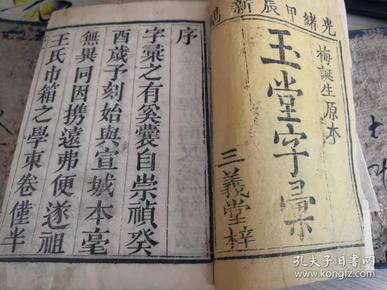 光緒甲辰新鐫
梅誕生原本
玉堂字彙
三義堂梓
序
字彙之有奚囊自崇禎癸
酉歲予刻始與宣城本毫
無異同因攜遠弗便遂祖
王氏巾箱之學東卷僅半
孔夫子旧书网